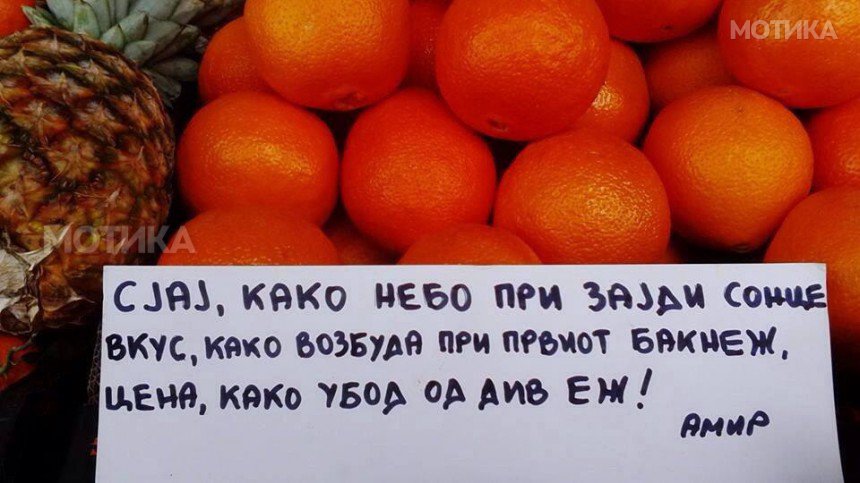 МОТИКА
МОТИКА
СЈАЈ, КАКО НЕБО ПРИ ЗАЈДИ СОНЦЕ
ВКУС, КАКО ВОЗБУДА ПРИ ПРВИОТ БАКНЕЖ,
ЦЕНА, КАКО УБОД ОД ДИВ ЕЖ!
АМИР